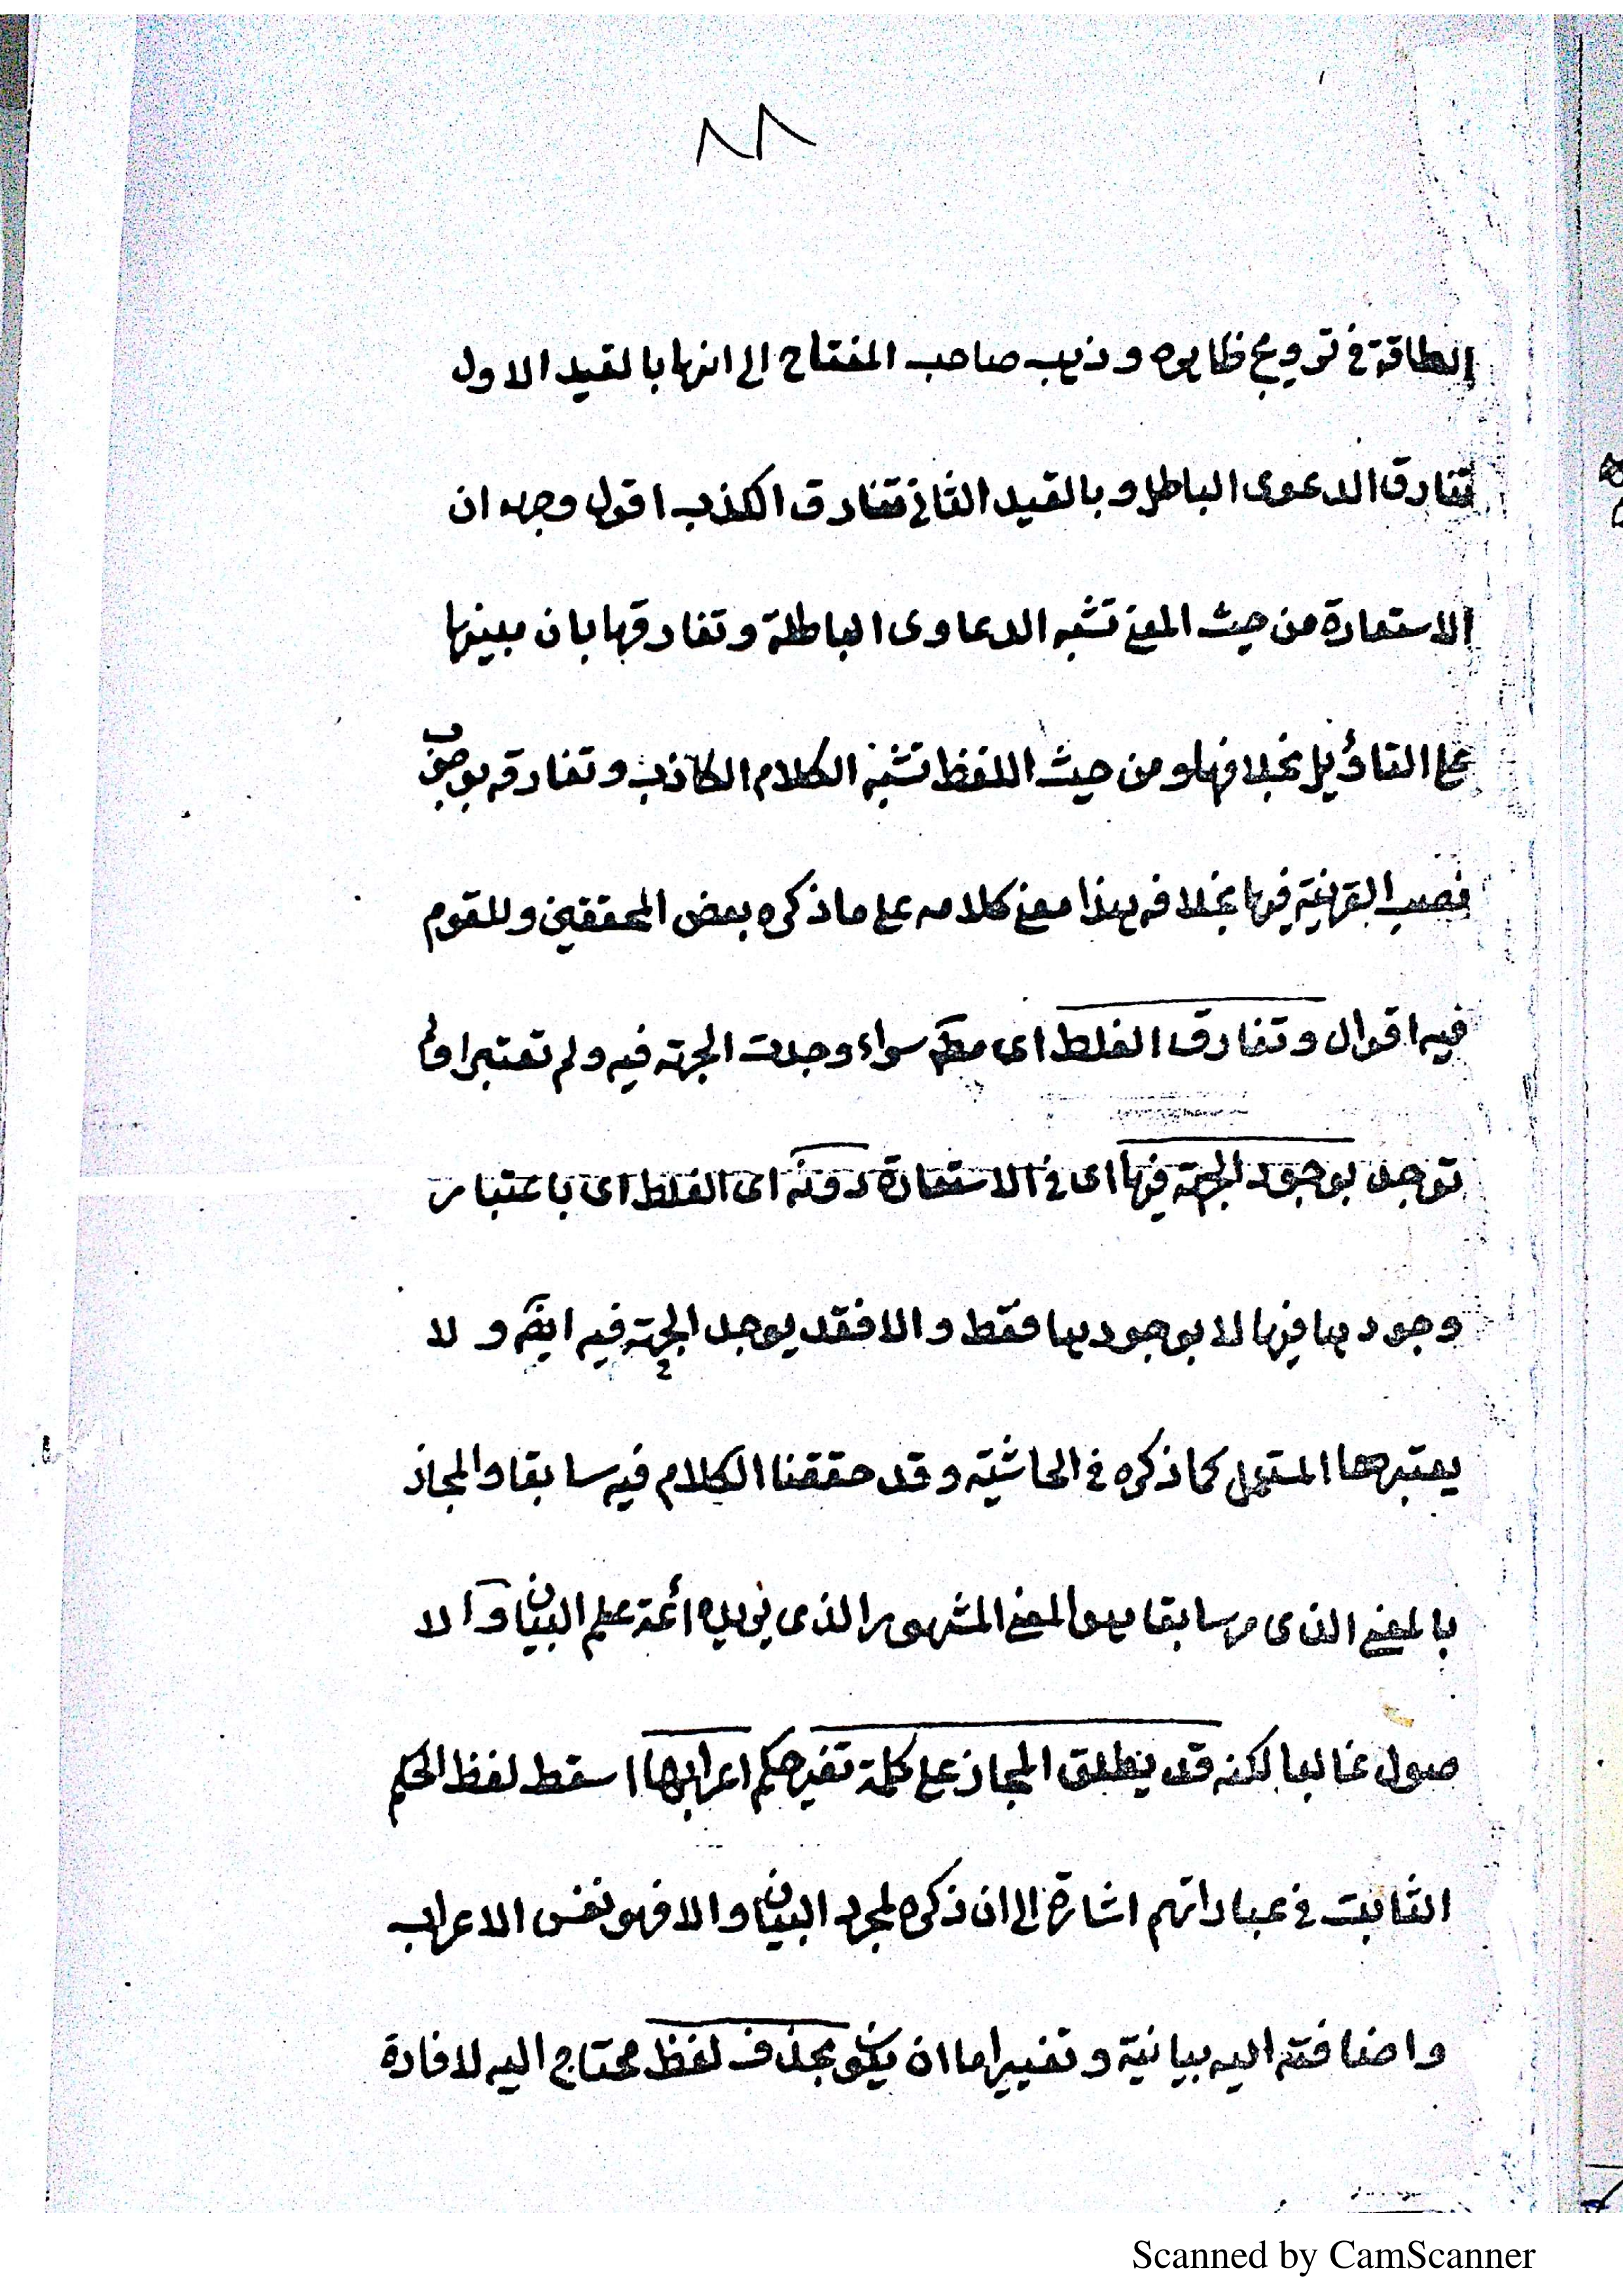 ٨٨
الطاقة في ترويج ظاهره وذهب صاحب المفتاح الى انها بالقيد الاول
تفارق الدعوى الباطل وبالقيد الثاني تفارق الكذب اقول وجهه ان
الاستعارة من حيث المعنى تشبه الدعاوى الباطلة وتفارقها بان مبنيها
على التاؤيل بخلافها ومن حيث اللفظ تشبه الكلام الكاذب وتفارقه بوصف
نصب القرينة فيها بخلافه هذا معنى كلامه على ما ذكره بعض المحققين وللقوم
فيه اقوال وتفارق الغلط اى مط سواء وجدت الجهة فيه ولم تعتبر او لم
توجد بوجود الجهة فيها اى في الاستعارة دونه اى الغلط اى باعتبار
وجودها فيها لا بوجودها فقط والا فقد يوجد الجهة فيه ايضا ولا
يعتبرها المستعمل كما ذكره في الحاشية وقد حققنا الكلام فيه سابقا والمجاز
بالمعنى الذى مر سابقا هو المعنى المشهور الذى يريده ائمة علم البيان والا
صول غالبا لكنه قد يطلق المجاز على كلمة تغير حكم اعرابها اسقط لفظ الحكم
الثابت في عباراتهم اشارة الى ان ذكره لمجرد البيان والا فهو نفس الاعراب
واضافته اليه بيانية وتغييرها اما ان يكون بحذف لفظ محتاج اليه لافادة
Scanned by CamScanner